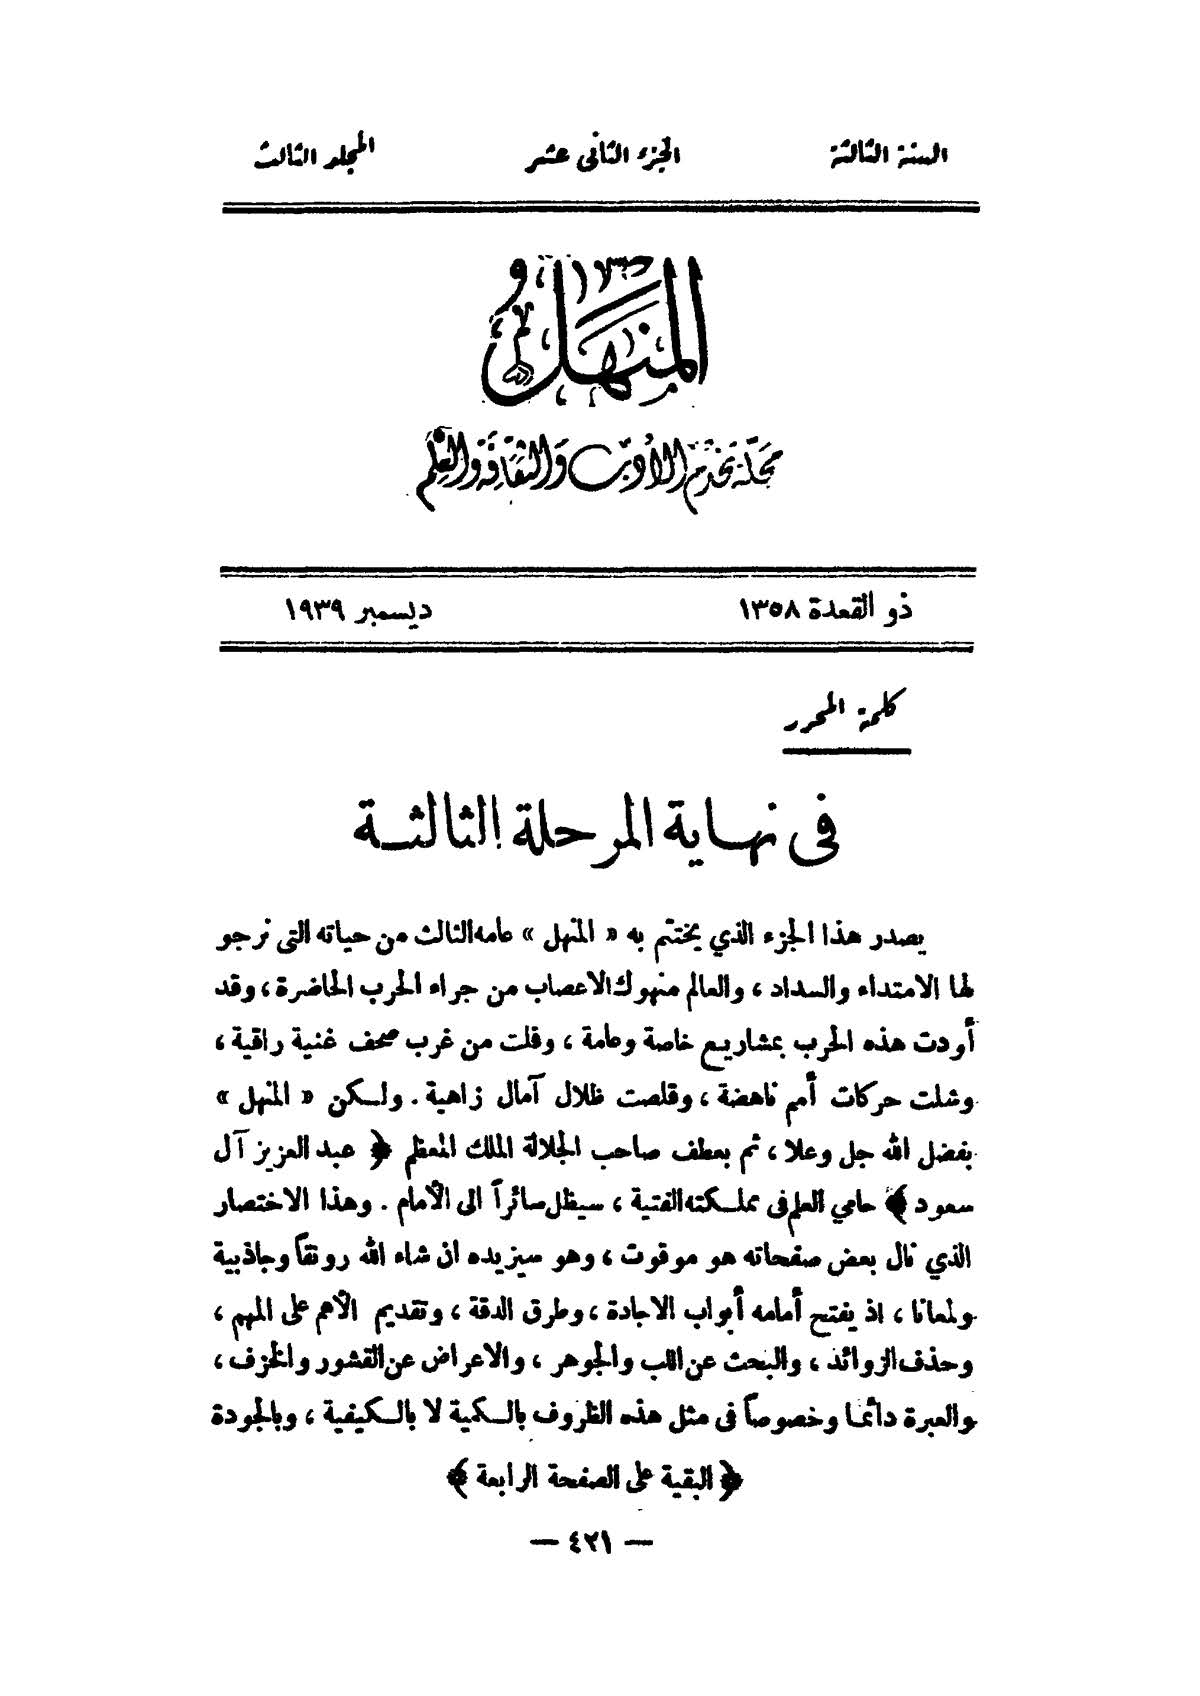 السنة الثالثة الجزء الثانى عشر المجلد الثالث
المنهل
مجلة تخدم الأدب والثقافة والعلم
ذو القعدة ١٣٥٨ ديسمبر ١٩٣٩
كلمة المحرر
فى نهاية المرحلة الثالثة
يصدر هذا الجزء الذي يختتم به « المنهل » عامه الثالث من حياته التى نرجو
لها الامتداء والسداد ، والعالم منهوك الاعصاب من جراء الحرب الحاضرة ، وقد
أودت هذه الحرب بمشاريع خاصة وعامة ، وفلت من غرب صحف غنية راقية ،
وشلت حركات أمم ناهضة ، وقلصت ظلال آمال زاهية . ولكن « المنهل »
بفضل الله جل وعلا ، ثم بعطف صاحب الجلالة الملك المعظم ﴿ عبد العزيز آل
سعود ﴾ حامي العلم فى مملكته الفتية ، سيظل سائراً الى الأمام . وهذا الاختصار
الذي نال بعض صفحاته هو موقوت ، وهو سيزيده ان شاء الله رونقاً وجاذبية
ولمعانا ، اذ يفتح أمامه أبواب الاجادة ، وطرق الدقة ، وتقديم الأهم على المهم ،
وحذف الزوائد ، والبحث عن اللب والجوهر ، والاعراض عن القشور والخزف ،
والعبرة دائما وخصوصاً فى مثل هذه الظروف بالكمية لا بالكيفية ، وبالجودة
﴿ البقية على الصفحة الرابعة ﴾
— ٤٢١ —